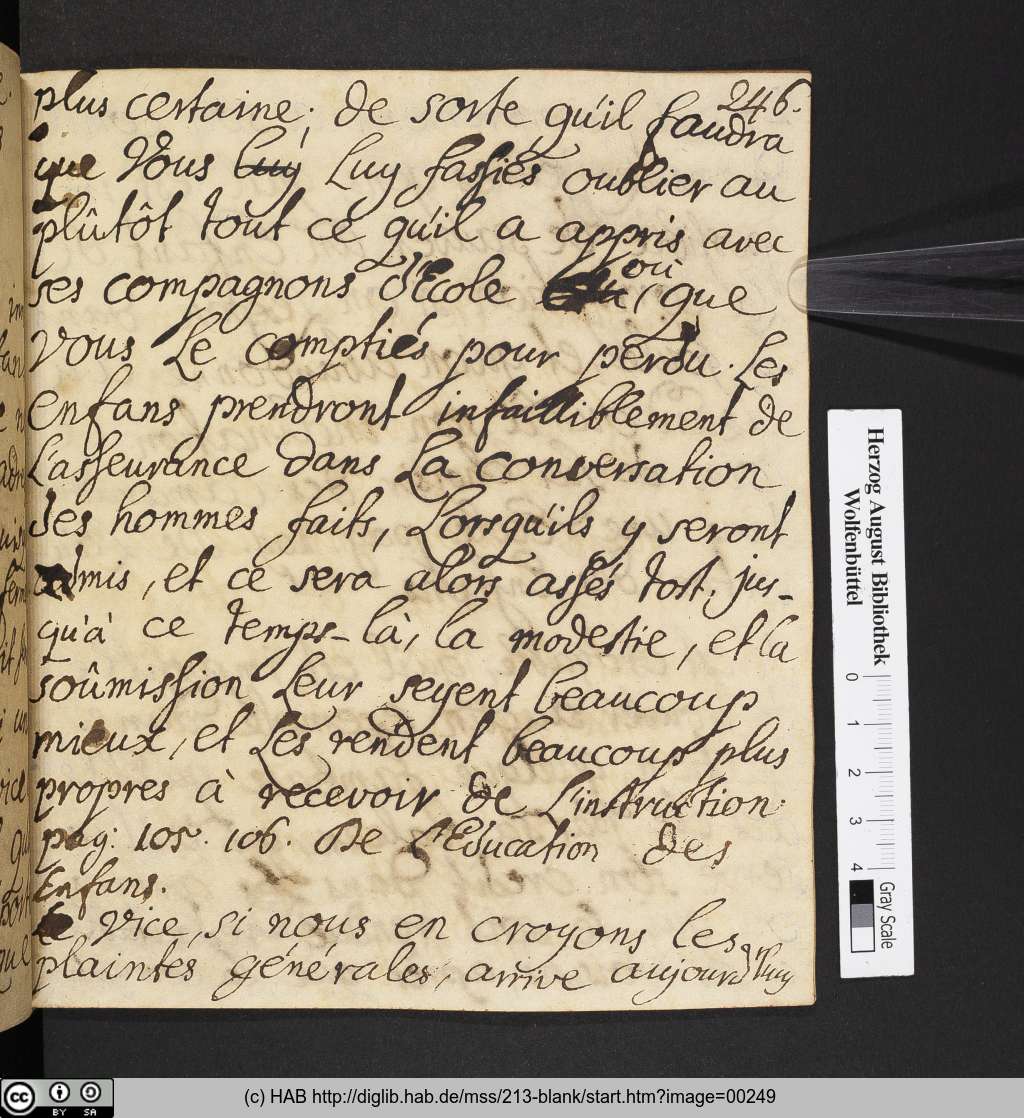 246.
plus certaine; de sorte qu'il faudra
que Vous luy Luy fassiés oublier au
plûtôt tout ce qu'il a appris avec
ses compagnons d'Ecole où, que
Vous Le comptiés pour perdu. Les
Enfans prendront infailliblement de
L'asseurance dans La conversation
des hommes faits, Lorsqu'ils y seront
admis, et ce sera alors assés tost; jus-
qu'à ce temps-là, la modestie, et la
soûmission Leur seyent beaucoup
mieux, et Les rendent beaucoup plus
propres à recevoir de L'instruction.
pag: 105. 106. De L'Education des
Enfans.
Le vice, si nous en croyons les
plaintes générales, arrive aujourd'huy
Herzog August Bibliothek
Wolfenbüttel
0 1 2 3 4
Gray Scale
cc BY SA
(c) HAB http://diglib.hab.de/mss/213-blank/start.htm?image=00249